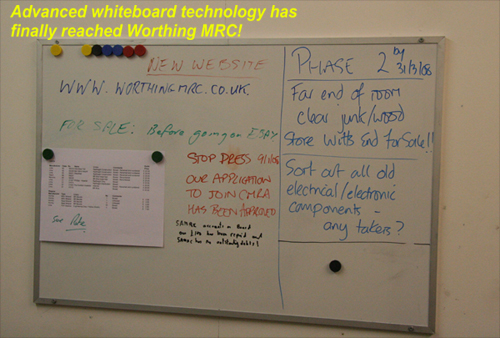 Advanced whiteboard technology has
finally reached Worthing MRC!
NEW WEBSITE
WWW.WORTHINGMRC.CO.UK
FOR SALE: Before going on EBAY
STOP PRESS 9/1/08
OUR APPLICATION
TO JOIN CMRA
HAS BEEN APPROVED
accounts on Board
our has been repaid and
has no outstanding debts!
PHASE 2 by
31/3/08
Far end of room
clear junk/wood
Store Witts End For Sale!!
Sort out all old
electrical/electronic
components -
any takers?